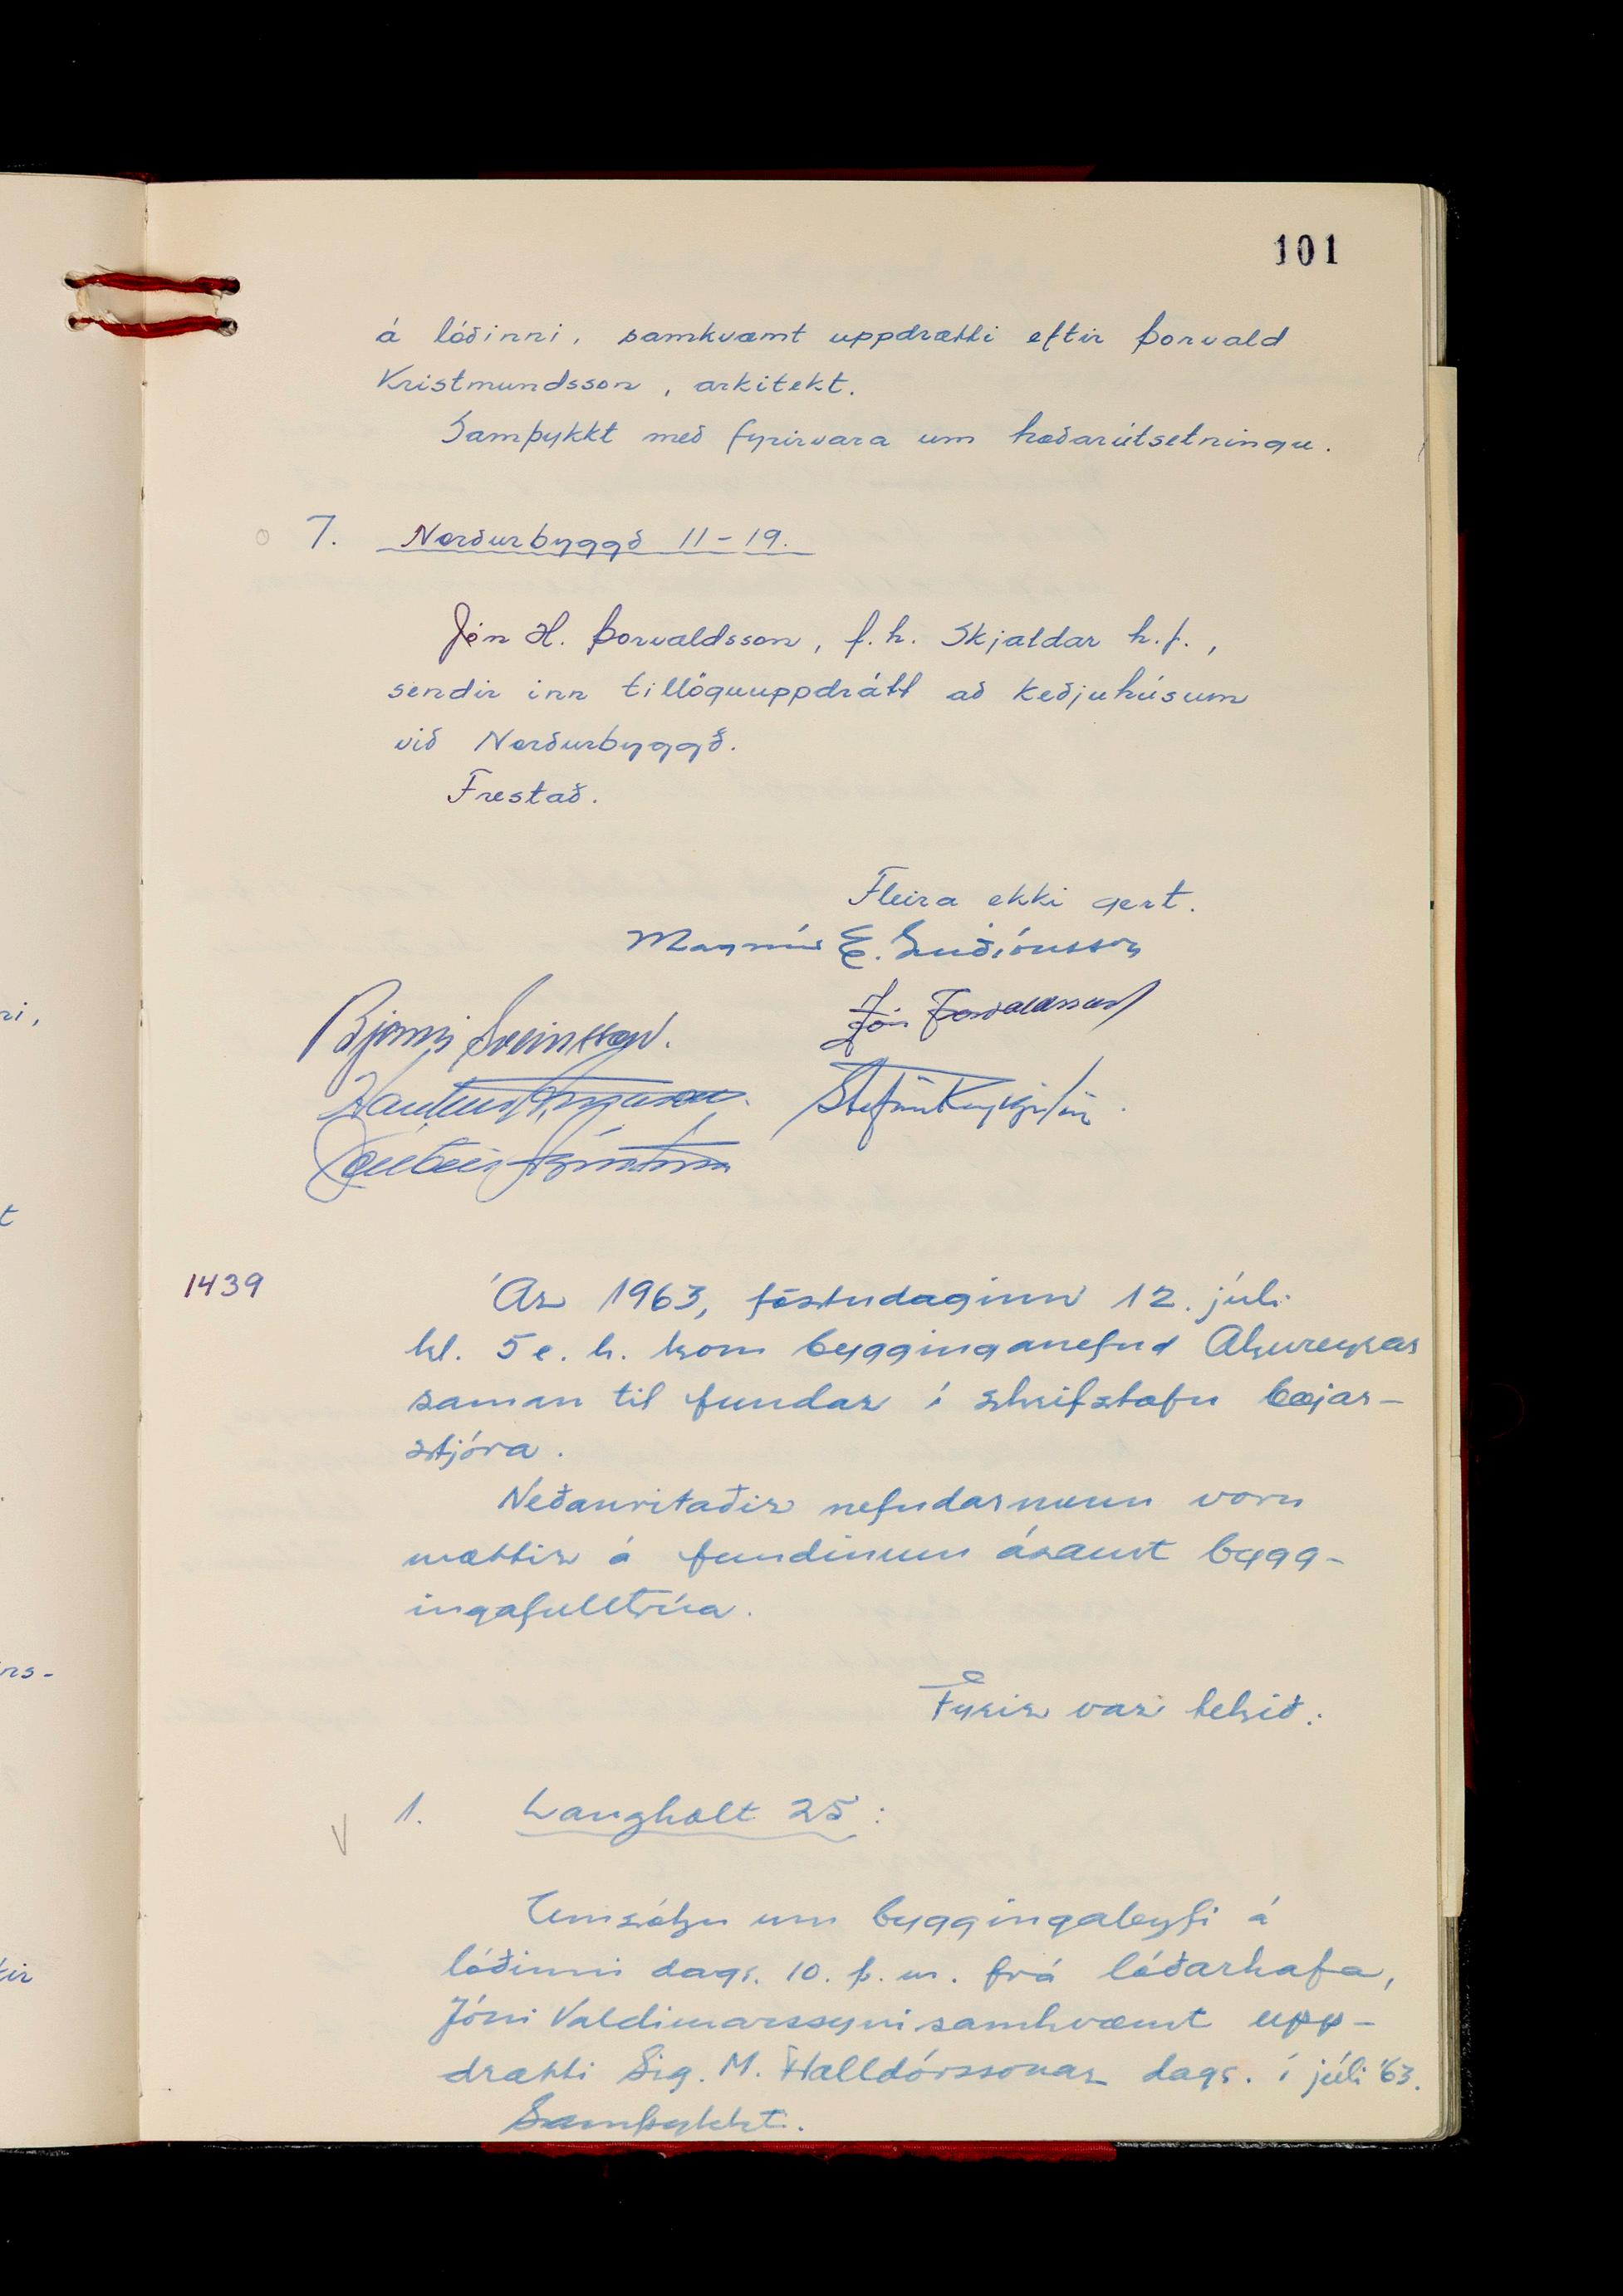 101
á lóðinni, samkvæmt uppdrætti eftir Þorvald
Kristmundsson, arkitekt.
Samþykkt með fyrirvara um hæðarútsetningu.
7. Norðurbyggð 11-19.
Jón H. Þorvaldsson, f.h. Skjaldar h.f.,
sendir inn tillöguuppdrátt að keðjuhúsum
við Norðurbyggð.
Frestað.
Fleira ekki gert.
Magnús E. Guðjónsson
Jón Þorvaldsson
Bjarni Sveinsson.
Haukur Árnason.
Stefán Reykjalín.
1439
Ár 1963, föstudaginn 12. júlí
kl. 5 e. h. kom bygginganefnd Akureyrar
saman til fundar í skrifstofu bæjar-
stjóra.
Neðanritaðir nefndarmenn voru
mættir á fundinum ásamt bygg-
ingafulltrúa.
Fyrir var tekið:
1. Langholt 25:
Umsókn um byggingaleyfi á
lóðinni dags. 10. þ. m. frá lóðarhafa,
Jóni Valdimarssyni samkvæmt upp-
drætti Sig. M. Halldórssonar dags. í júlí '63.
Samþykkt.
ri,
t
rs-
kir